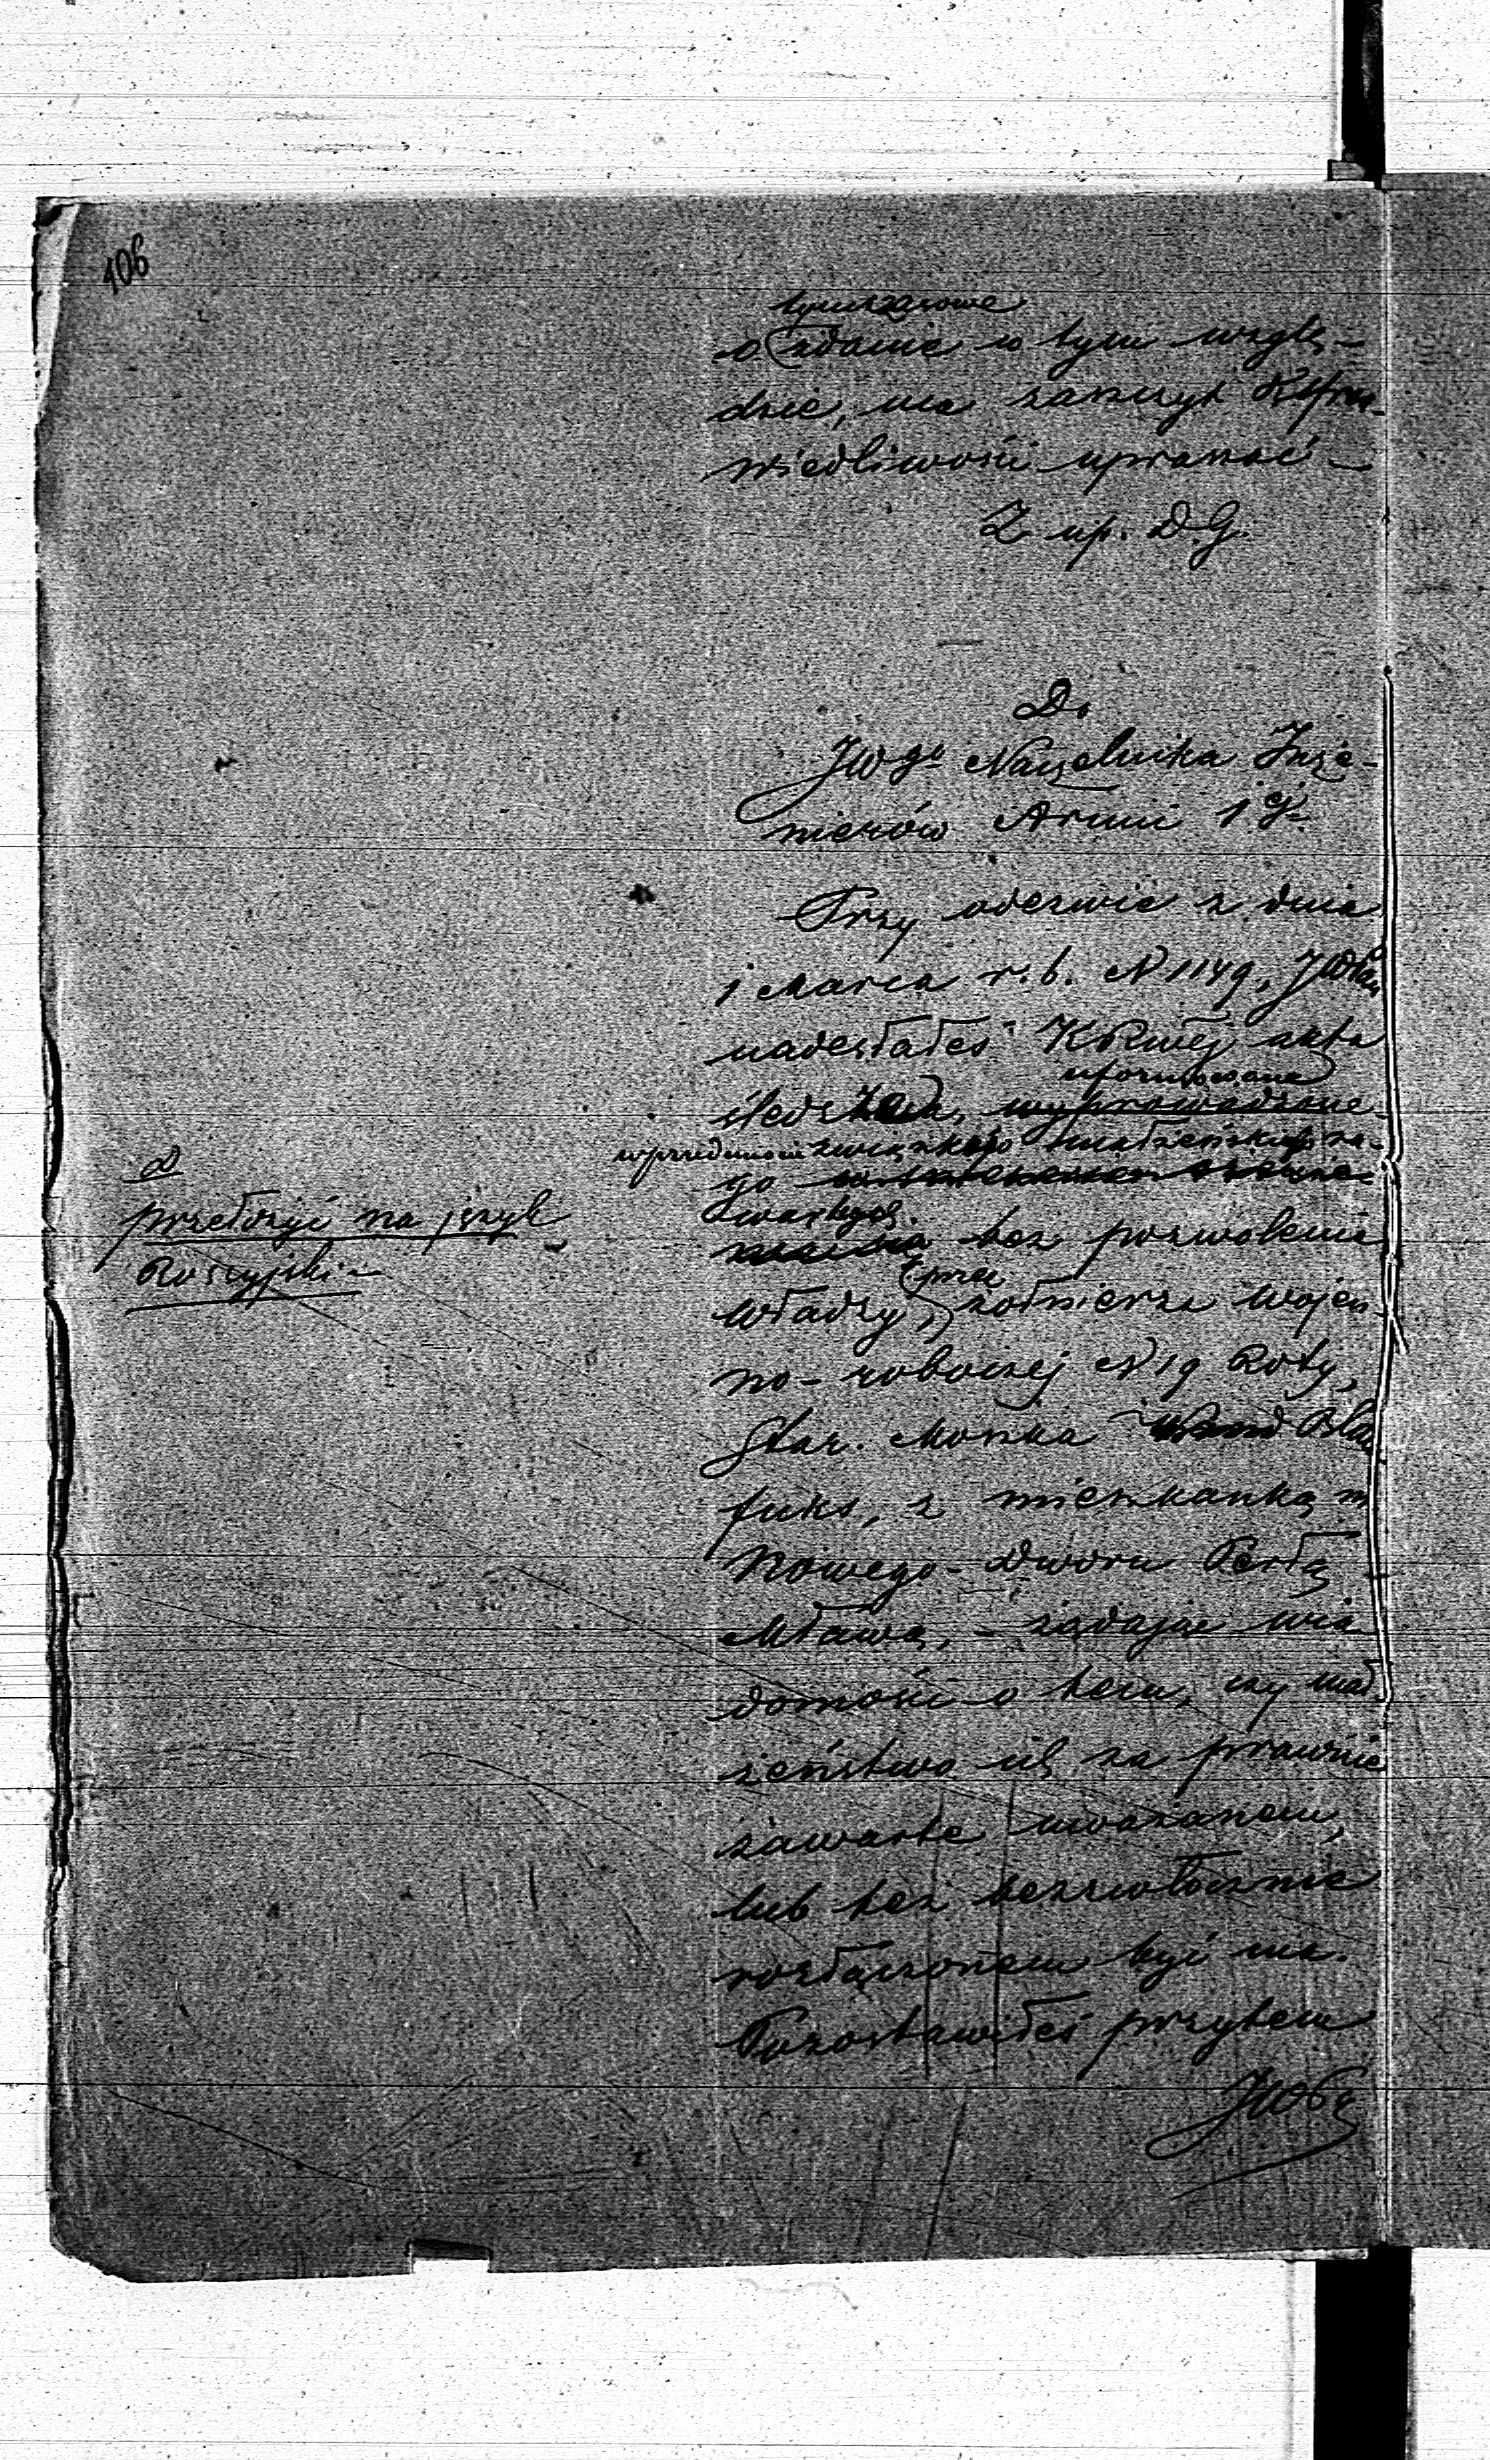 106
tymczasowe
o zdanie w tym wzglę-
dzie, ma zaszczyt KSpra-
wiedliwości upraszać
Z up. D.G.
Do
JWgo Naczelnika Inże-
nierów Armii 1ej
Przy odezwie z dnia
1 Marca r.b. N 1149, JWPan
nadesłałeś KRwej akta
uformowane
śledztwa, wyprowadzone-
w przedmiocie związku małżeńskiego za-
go
wartego
bez pozwolenia
przez
władzy, żołnierza Wojen-
no-roboczej N 19 Roty,
Star. Moszka Bla
fuks, z mieszkanką m.
Nowego-Dworu Perłą
Mława, - żądając wia-
domości o tem, czy mał-
żeństwo ich za prawnie
zawarte uważanem,
lub też bezzwłocznie
rozłączonem być ma.
Pozostawiłeś przytem
JWPan
D
przełożyć na język
Rossyjski